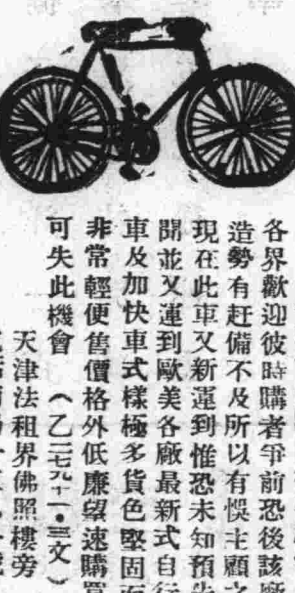 各界歡迎彼時購者爭前恐後該廠
造勢有赶備不及所以有悞主顧之
現在此車又新運到惟恐未知預先
聞並又運到歐美各廠最新式自行
車及加快車式樣極多貨色堅固而
非常輕便售價格外低廉望速購買
可失此機會 (乙二七九十一•三文)
天津法租界佛照樓旁